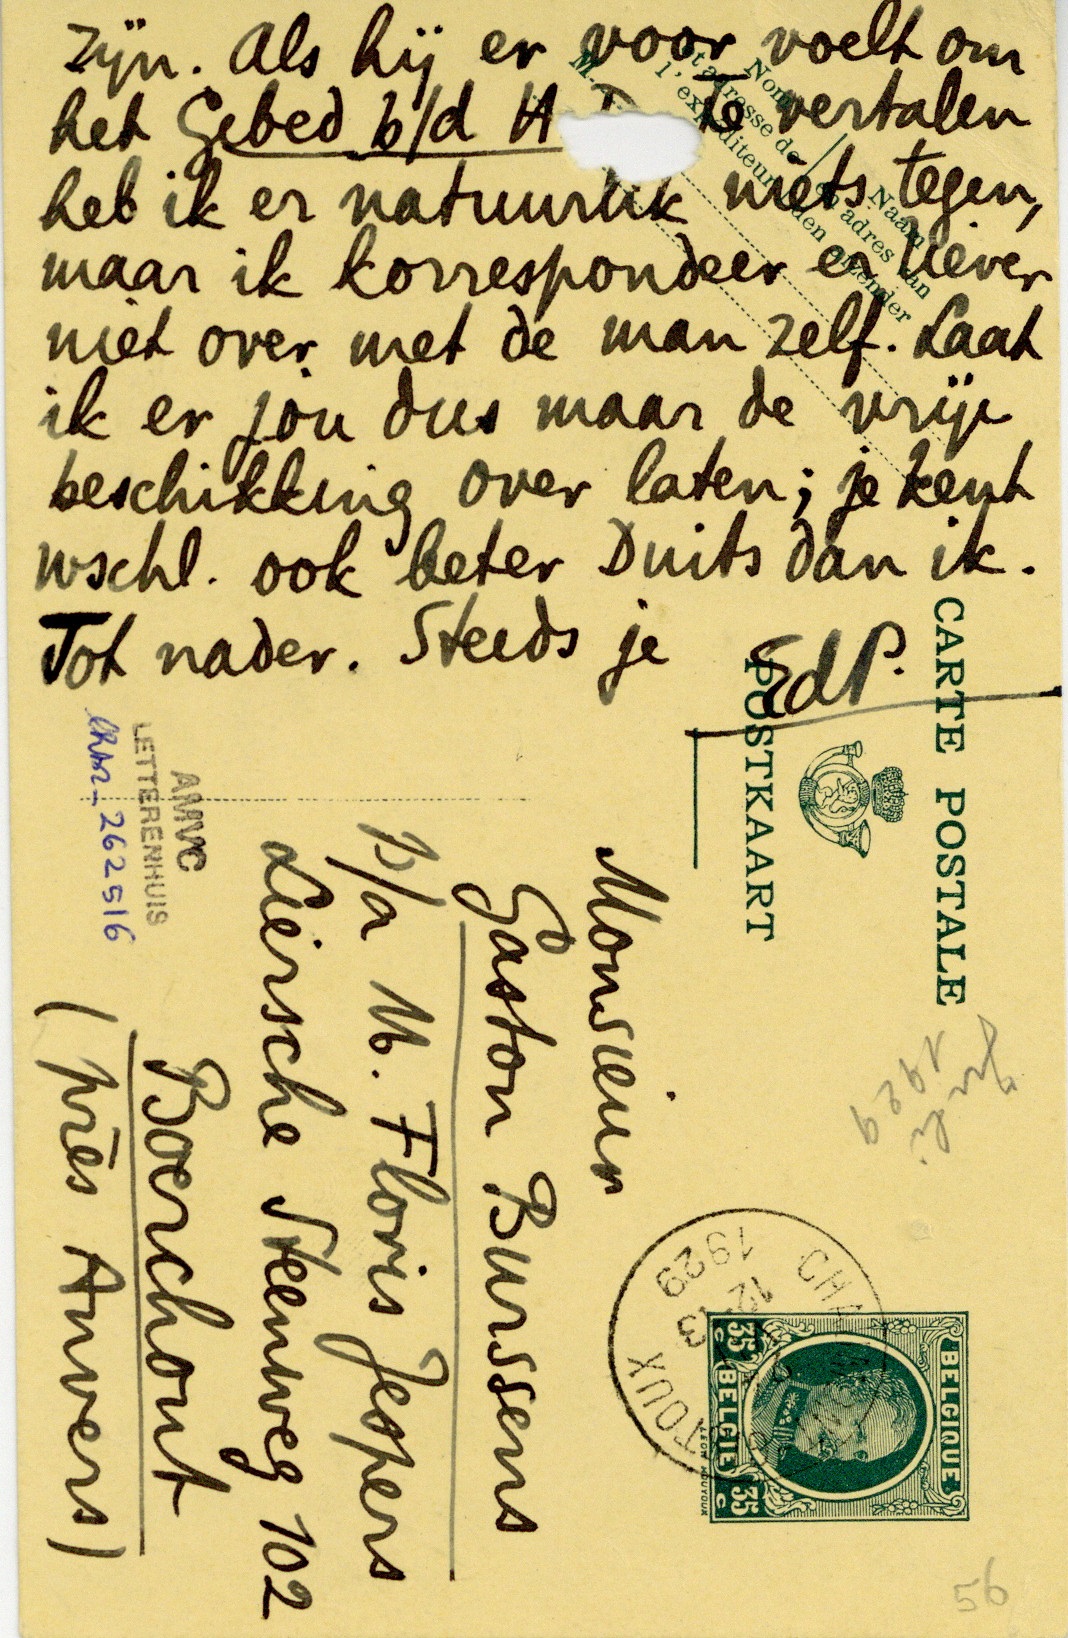 zijn. Als hij er voor voelt om
het Gebed b/d H te vertalen
heb ik er natuurlik niets tegen,
maar ik korrespondeer er liever
niet over met de man zelf. Laat
ik er jou dus maar de vrije
beschikking over laten; je kent
wschl. ook beter Duits dan ik.
Tot nader. Steeds je EdP.
M.
Nom
et adresse de
l'expéditeur
Naam
en adres van
den afzender
CARTE POSTALE
POSTKAART
Monsieur
Gaston Burssens
p/a M. Floris Jespers
Liersche Steenweg 102
Boerchout
(près Anvers)
AMVC
LETTERENHUIS
262516
1929
12
1929
BELGIQUE
BELGIE
35 c
35 c
56